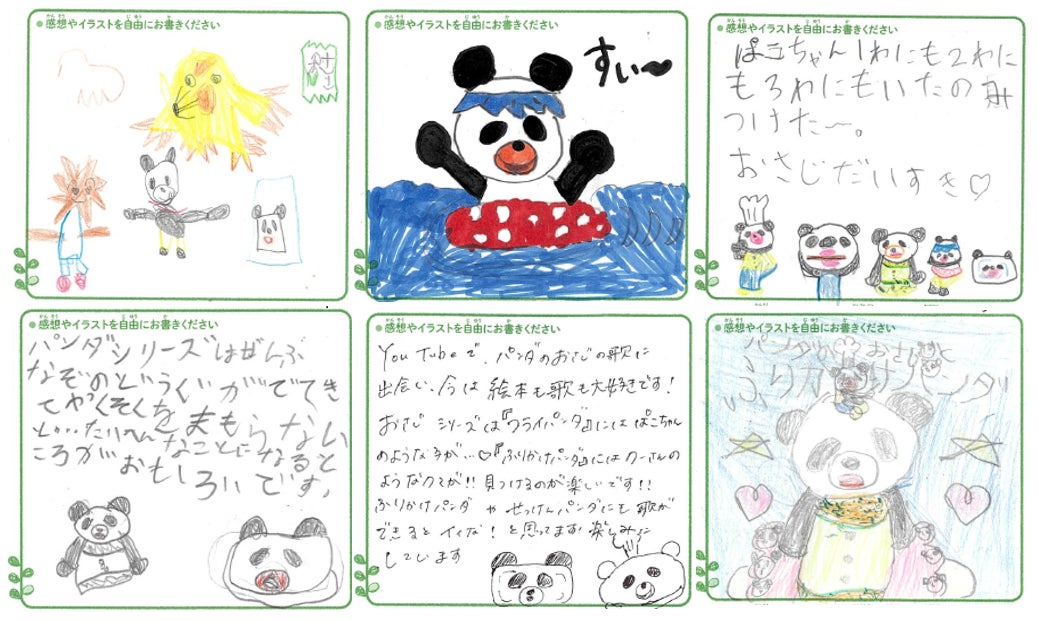 感想やイラストを自由にお書きください
感想やイラストを自由にお書きください
すい〜
感想やイラストを自由にお書きください
ぱこちゃん1わにも2わに
も3わにもいたのみ
つけた〜。
おさじだいすき♡
感想やイラストを自由にお書きください
パンダシリーズはぜんぶ
なぞのどうぐがでてき
てやくそくをまもらない
と…たいへんなことになると
ころがおもしろいです。
感想やイラストを自由にお書きください
YouTubeで、パンダのおさじの歌に
出会い、今は絵本も歌も大好きです!
おさじシリーズは『フライパンダ』にはぱこちゃん
のような子が…♡『ふりかけパンダ』にはクーさんの
ようなクマが!!見つけるのが楽しいです!!
ふりかけパンダやせっけんパンダにも歌が
できるとイイな!と思ってます。楽しみに
しています
感想やイラストを自由にお書きください
パンダのおさじと
ふりかけパンダ